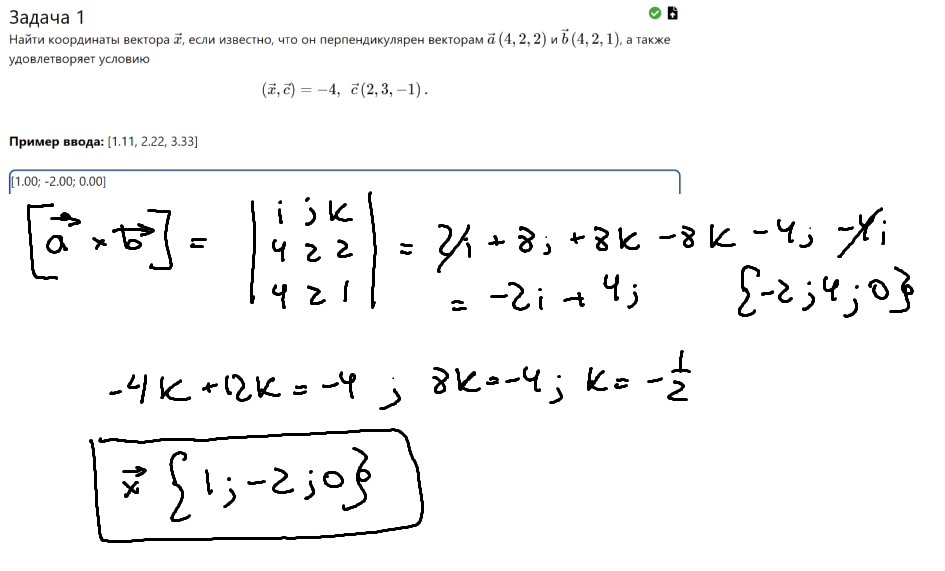 Задача 1
Найти координаты вектора x⃗, если известно, что он перпендикулярен векторам a⃗ (4, 2, 2) и b⃗ (4, 2, 1), а также
удовлетворяет условию
(x⃗, c⃗) = −4, c⃗ (2, 3, −1) .
Пример ввода: [1.11, 2.22, 3.33]
[1.00; -2.00; 0.00]
[a⃗ × b⃗] = | i j k | 4 2 2 | 4 2 1 | = 2i + 8j + 8k − 8k − 4j − 4i
= −2i + 4j {−2; 4; 0}
−4k + 12k = −4 ; 8k = −4; k = −1/2
x⃗ {1; −2; 0}